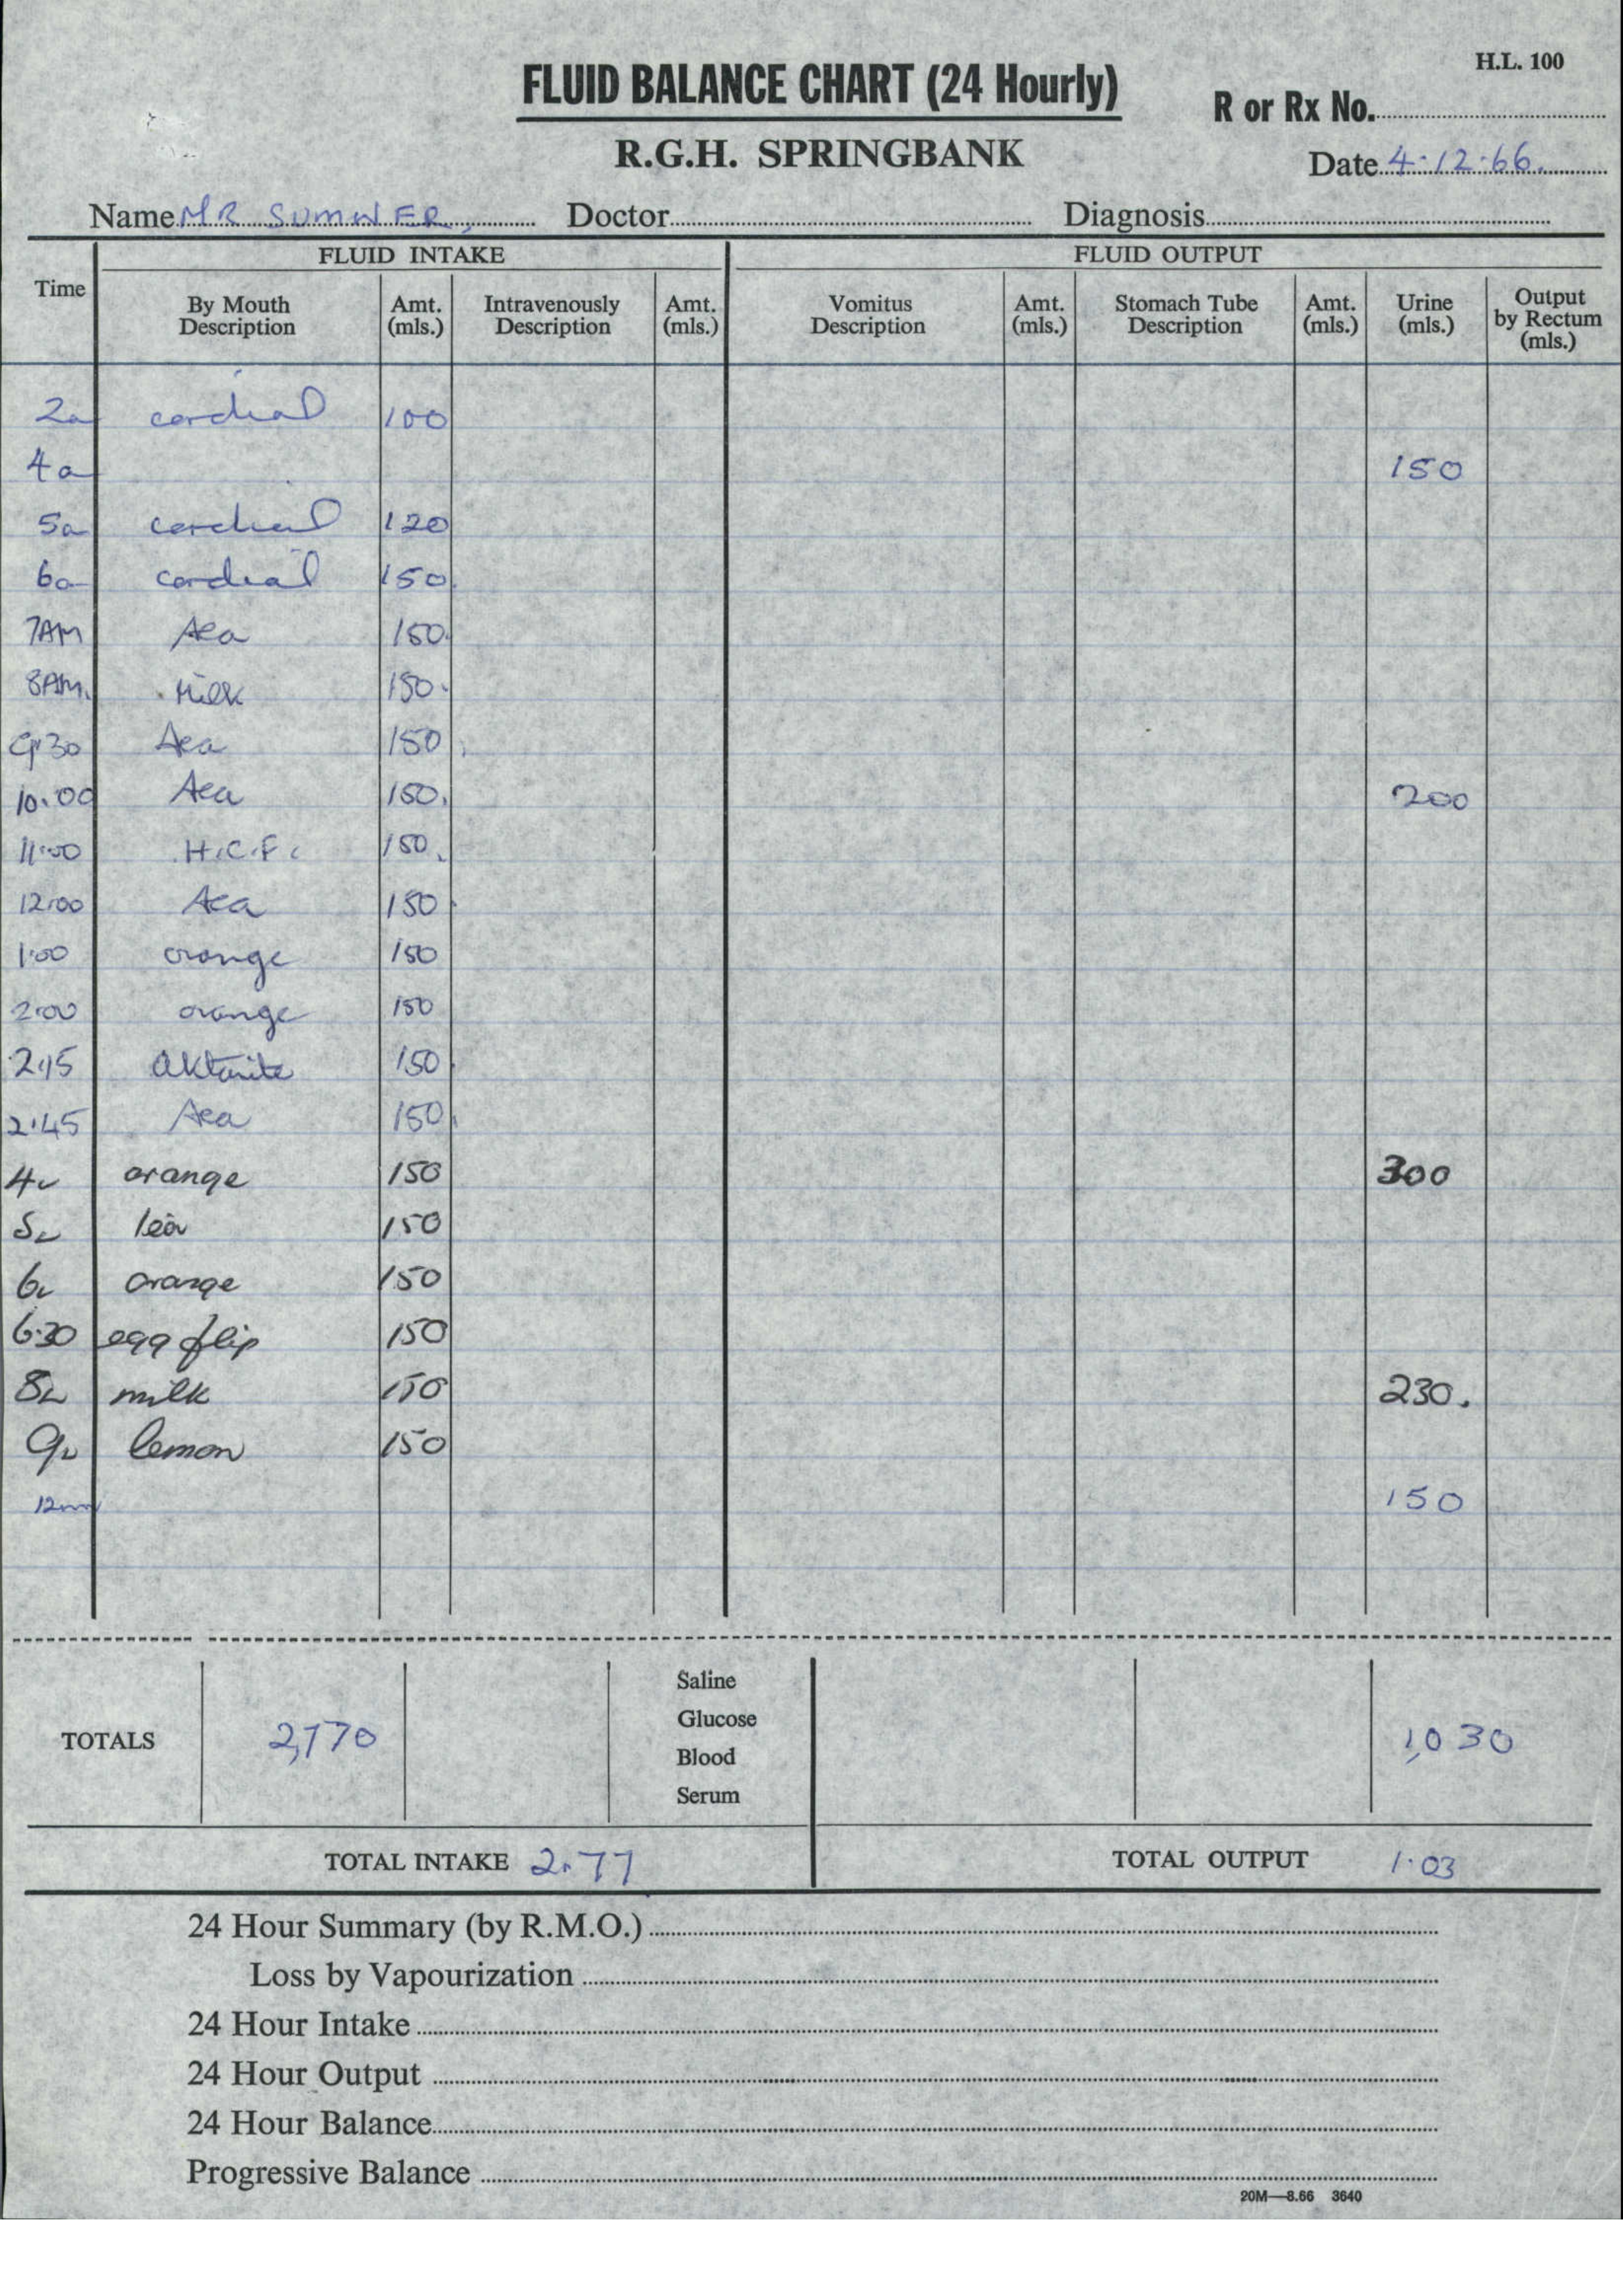 H.L. 100
FLUID BALANCE CHART (24 Hourly)
R or Rx No.
R.G.H. SPRINGBANK
Date 4.12.66.
Name MR SUMNER Doctor Diagnosis
FLUID INTAKE FLUID OUTPUT
Time By Mouth Description Amt. (mls.) Intravenously Description Amt. (mls.) Vomitus Description Amt. (mls.) Stomach Tube Description Amt. (mls.) Urine (mls.) Output by Rectum (mls.)
2a cordial 100
4a 150
5a cordial 120
6a cordial 150.
7AM Tea 150.
8AM. Milk 150.
9.30 Tea 150
10.00 Tea 150. 200
11.00 H.C.F. 150.
12.00 Tea 150
1.00 orange 150
2.00 orange 150
2.15 Aktavite 150
2.45 Tea 150
4 orange 150 300
5 tea 150
6 orange 150
6.30 egg flip 150
8 milk 150 230.
9 lemon 150
12mn 150
TOTALS 2,770 Saline 1,030
Glucose
Blood
Serum
TOTAL INTAKE 2.77 TOTAL OUTPUT 1.03
24 Hour Summary (by R.M.O.)
Loss by Vapourization
24 Hour Intake
24 Hour Output
24 Hour Balance
Progressive Balance
20M—8.66 3640